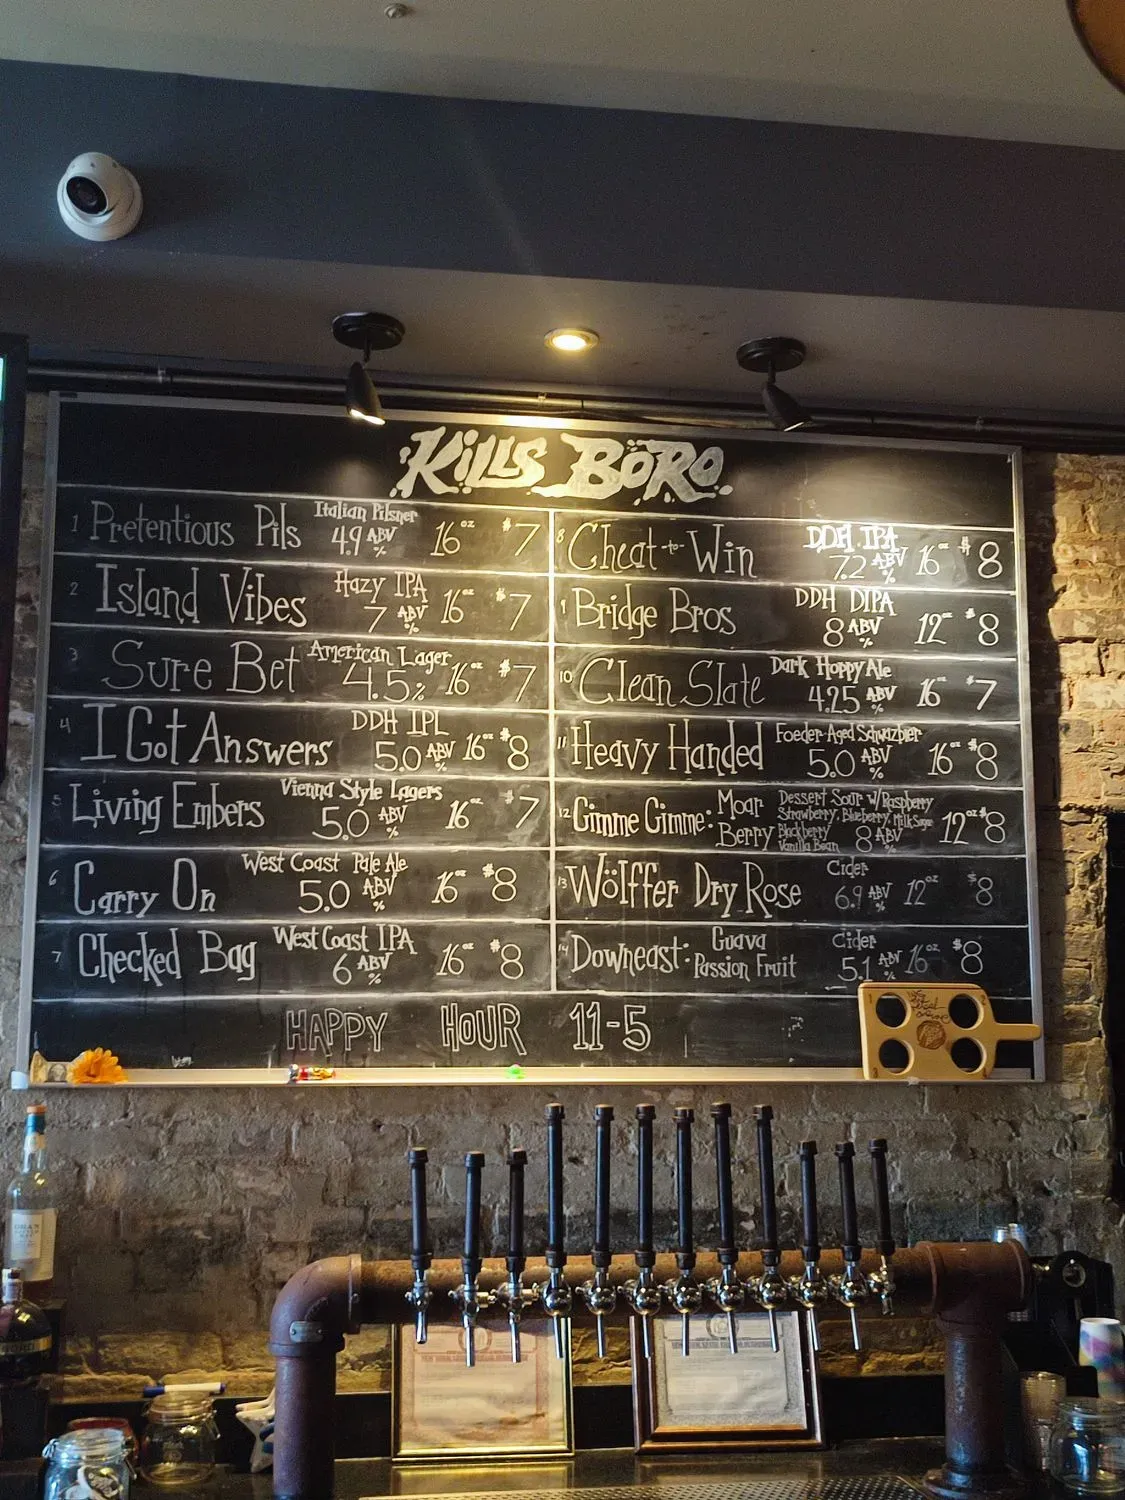 KILLS BORO
1 Pretentious Pils Italian Pilsner 4.9 ABV % 16 oz $7
2 Island Vibes Hazy IPA 7 ABV % 16 oz $7
3 Sure Bet American Lager 4.5% 16 oz $7
4 I Got Answers DDH IPL 5.0 ABV % 16 oz $8
5 Living Embers Vienna Style Lagers 5.0 ABV % 16 oz $7
6 Carry On West Coast Pale Ale 5.0 ABV % 16 oz $8
7 Checked Bag West Coast IPA 6 ABV % 16 oz $8
8 Cheat-to-Win DDH IPA 7.2 ABV % 16 oz $8
9 Bridge Bros DDH DIPA 8 ABV % 12 oz $8
10 Clean Slate Dark Hoppy Ale 4.25 ABV % 16 oz $7
11 Heavy Handed Foeder-Aged Schwazbier 5.0 ABV % 16 oz $8
12 Gimme Gimme: Moar Berry Dessert Sour w/Raspberry
Strawberry, Blueberry, Milk Sugar
Blackberry
Vanilla Bean 8 ABV % 12 oz $8
13 Wölffer Dry Rose Cider 6.9 ABV % 12 oz $8
14 Downeast: Guava Passion Fruit Cider 5.1 ABV % 16 oz $8
HAPPY HOUR 11-5